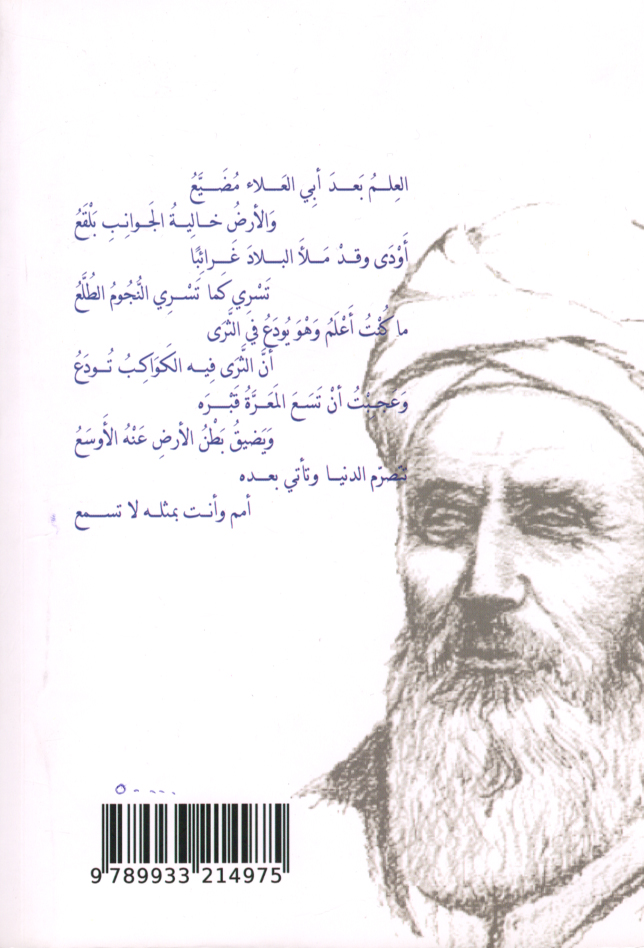 العِلـمُ بَعـدَ أبِي العَـلاء مُضَـيَّعُ
وَالأرضُ خـاليةُ الجَوانِبِ بَلْقَعُ
أَوْدَى وقدْ مَـلأ البـلادَ غَـرائبًا
تَسْرِي كما تَسْـرِي النُّجُومُ الطُلَّعُ
ما كُنْتُ أَعْلَمُ وَهْوَ يُودَعُ فِي الثَّرَى
أنَّ الثَّرَى فِيـه الكَوَاكِبُ تُـودَعُ
وَعجبْتُ أنْ تَسَعَ المَعَرَّةُ قَبْـرَه
وَيَضيقُ بَطْنُ الأرضِ عَنْهُ الأَوسَعُ
تتصرّم الدنيـا وتأتي بعـده
أمم وأنـت بمثلـه لا تسـمع
9 789933 214975